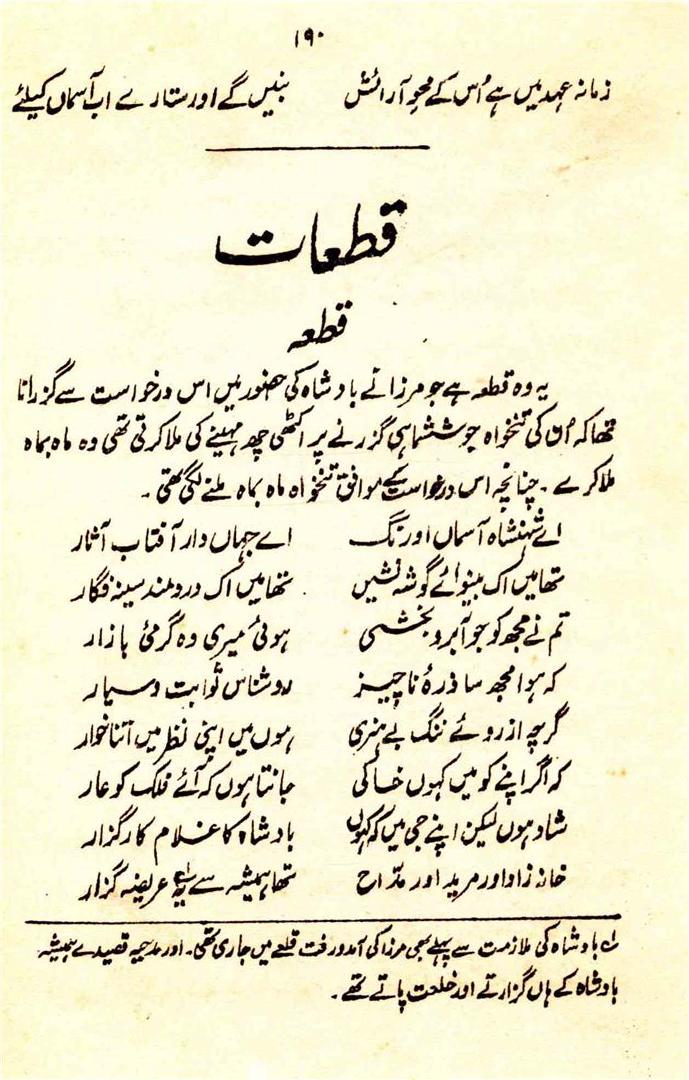 ۱۹۰
زمانہ عہد میں ہے اُس کے محوِ آرائش بنیں گے اور ستارے اب آسماں کیلئے
قطعات
قطعہ
یہ وہ قطعہ ہے جو مرزا نے بادشاہ کی حضور میں اس درخواست سے گزرانا
تھا کہ اُن کی تنخواہ جو ششماہی گزرنے پر اکٹھی چھ مہینے کی ملا کرتی تھی وہ ماہ بماہ
ملا کرے ۔ چنانچہ اس درخواست کے موافق تنخواہ ماہ بماہ ملنے لگی تھی ۔
اے شہنشاہ آسماں اورنگ اے جہاں دار آفتاب آثار
تھا میں اک بینوائے گوشہ نشیں تھا میں اک دردمند سینہ فگار
تم نے مجھ کو جو آبرو بخشی ہوئی میری وہ گرمیٔ بازار
کہ ہوا مجھ سا ذرۂ ناچیز روشناس ثوابت و سیار
گرچہ از روئے ننگ بے ہنری ہوں میں اپنی نظر میں اتنا خوار
کہ اگر اپنے کو میں کہوں خاکی جانتا ہوں کہ آئے فلک کو عار
شاد ہوں لیکن اپنے جی میں کہ ہوں بادشاہ کا غلام کارگزار
خانہ زاد اور مرید اور مدّاح تھا ہمیشہ سے یہ عریضہ گزار
لہ بادشاہ کی ملازمت سے پہلے بھی مرزا کی آمد و رفت قلعے میں جاری تھی ۔ اور مدحیہ قصیدے ہمیشہ
بادشاہ کے ہاں گزارتے اور خلعت پاتے تھے ۔